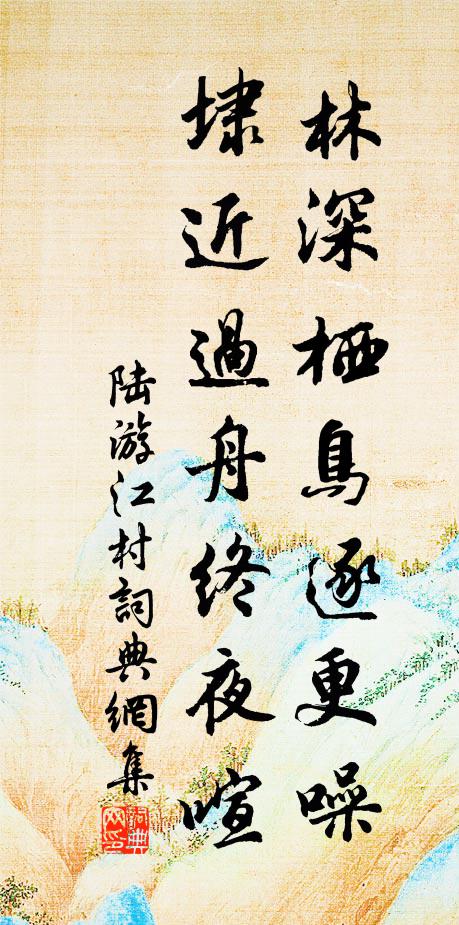 林深栖鳥逐更噪
埭近過舟終夜喧
陆游江村詞典網集
詞典